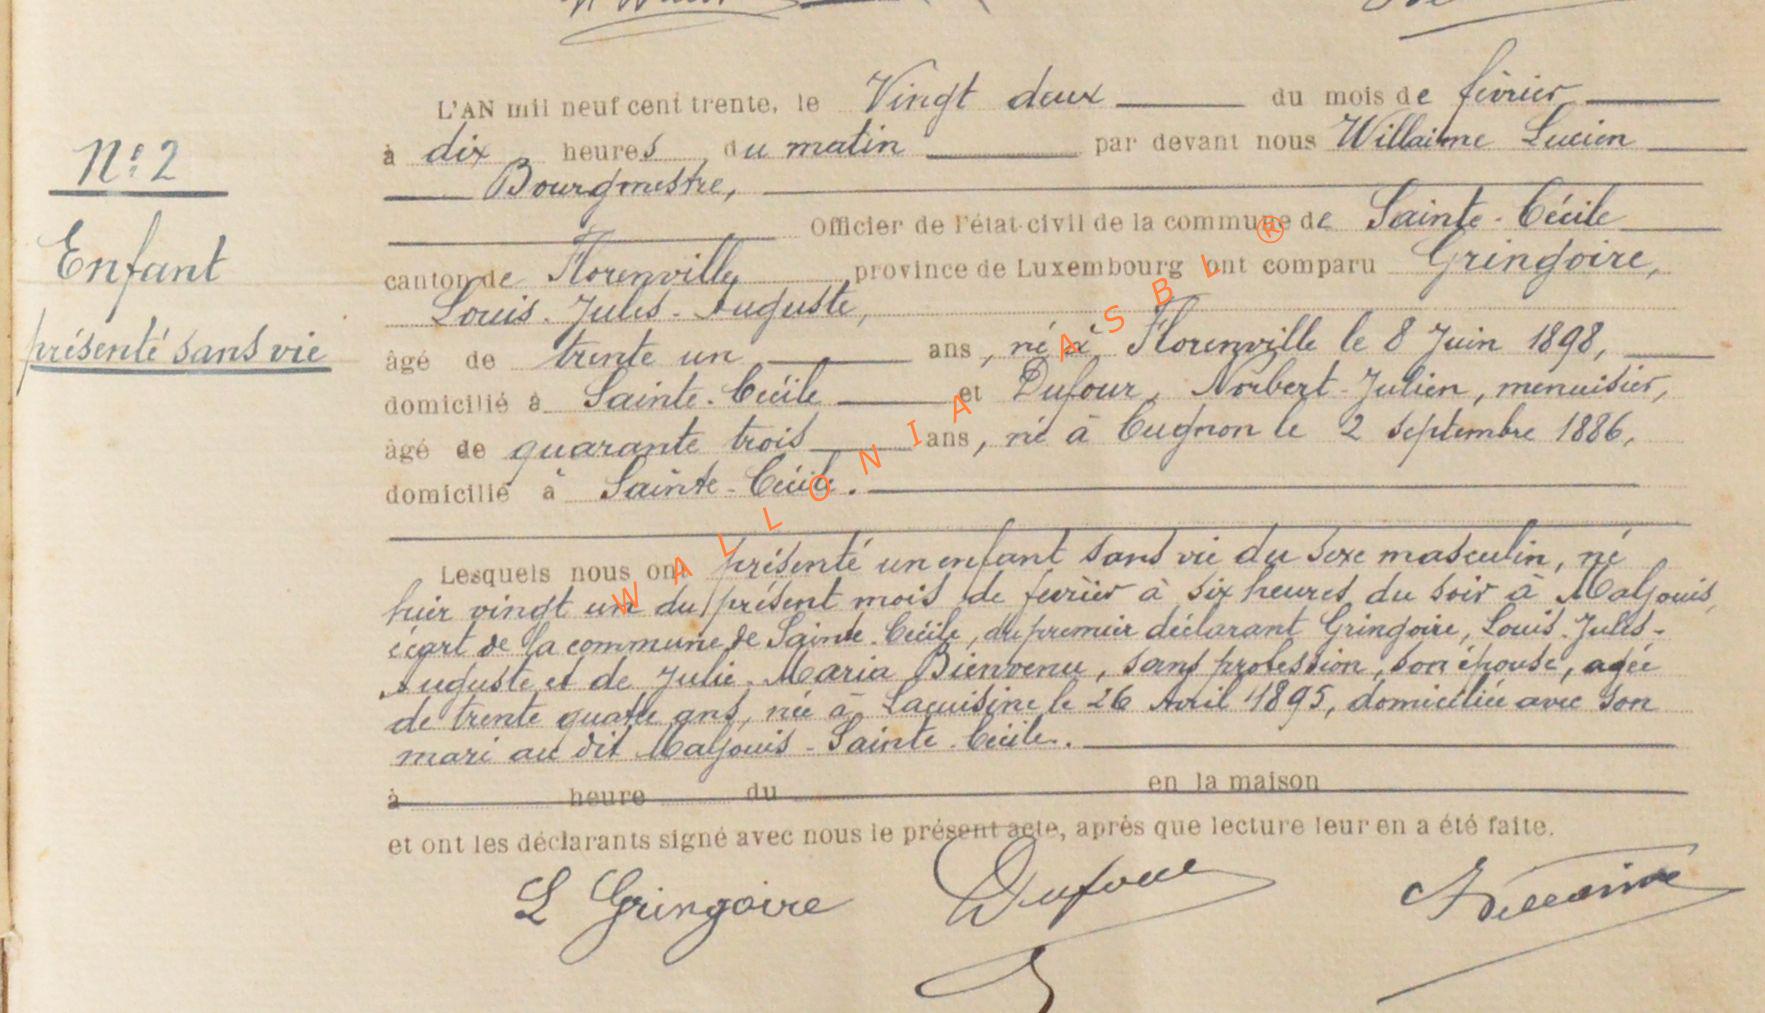 L'AN mil neuf cent trente, le Vingt deux du mois de février
à dix heures du matin par devant nous Willaime Lucien
Bourgmestre,
Officier de l'état-civil de la commune de Sainte-Cécile
canton de Florenville province de Luxembourg ont comparu Gringoire,
Louis-Jules-Auguste,
âgé de trente un ans, né à Florenville le 8 Juin 1898,
domicilié à Sainte-Cécile et Dufour, Norbert-Julien, menuisier,
âgé de quarante trois ans, né à Cugnon le 2 septembre 1886,
domicilié à Sainte-Cécile.
N° 2
Enfant
présenté sans vie
Lesquels nous ont présenté un enfant sans vie du sexe masculin, né
hier vingt un du présent mois de février à six heures du soir à Maljouis,
écart de la commune de Sainte-Cécile, du premier déclarant Gringoire, Louis-Jules-
Auguste et de Julie-Maria Bienvenu, sans profession, son épouse, agée
de trente quatre ans, née à Lacuisine le 26 Avril 1895, domiciliée avec son
mari au dit Maljouis-Sainte-Cécile.
à heure du en la maison
et ont les déclarants signé avec nous le présent acte, après que lecture leur en a été faite.
L Gringoire Dufour Willaime
WALLONIA ASBL ®